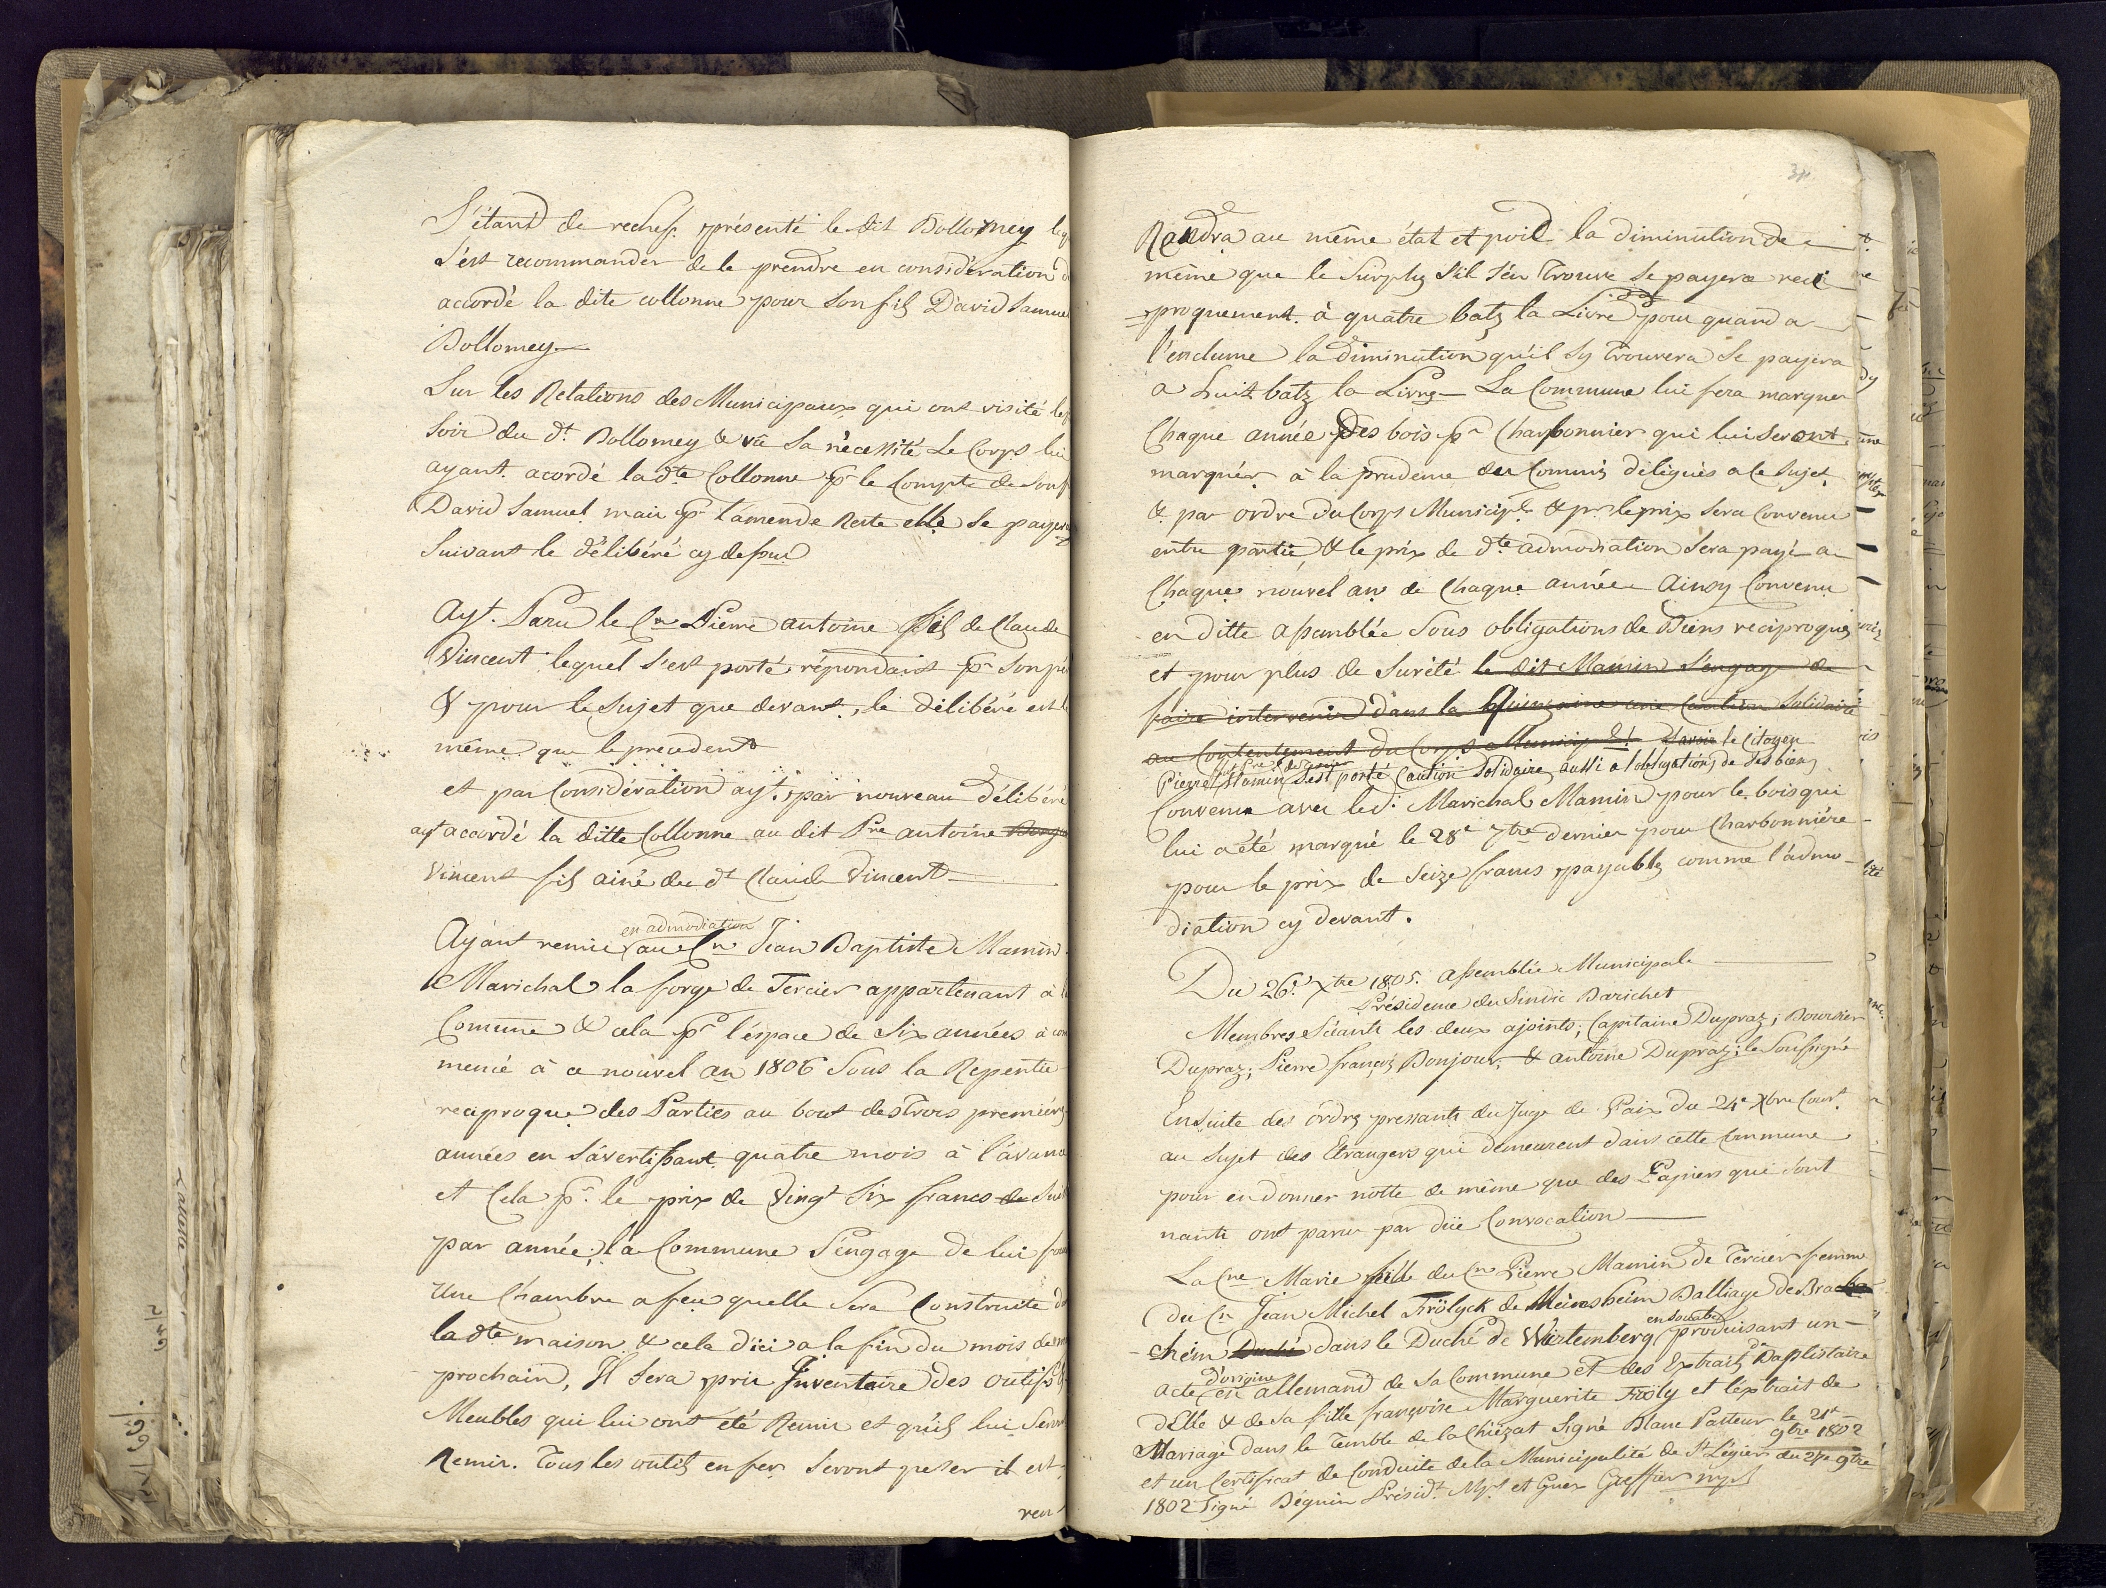 S'étant de rechef présenté le dit Dollomey
s'est recommander de le prendre en considération
accordé la dite collonne pour son fils David Samuel
Dollomey
Sur les Relations des Municipaux qui ont visité
soir du dt. Dollomey & vû sa nécessité Le Corps lui
ayant acordé la dte Collonne pr le Compte de son
David Samuel mais pr l'amende Reste elle se payera
suivant le délibéré cy dessus
Ayt. Paru le Cn Pierre antoine fils de Claude
Vincent lequel s'est porté répondant pr son
& pour le sujet que devant, le délibéré est
même que le precedent
et par Considération ayt. par nouveau délibéré
ayt accordé la ditte Collonne au dit Pre antoine
Vincent fils ainé du dt Claude Vincent
en admodiation
Ayant remis au Cn Jean Baptiste Mamin
Marichal la forge de Tercier appartenant à
Comune & cela pr l'éspace de six années à com
mencé à ce nouvel an 1806 sous la Repentie
reciproque des Parties au bout des trois premières
années en s'avertissant quatre mois à l'avance
et Cela pr. le prix de Vingt six francs de
par année; la Commune s'engage de lui
Une Chambre a feu quelle sera Construite
la dte maison & cela d'ici a la fin du mois de
prochain, Il sera pris Inventaire des outils
Meubles qui lui ont été Remis et qu'ils lui
Remis. Tous les outils en fer seront peser il est
ren
Raudra au même état et poid la diminution de
même que le surplus s'il s'en trouve se payera reci
proquement à quatre batz la Livre pour quand a
l'enclume la diminution qu'il sy trouvera se payera
a huit batz la Livre La Commune lui fera marquer
Chaque année des bois pr Charbonnier qui lui seront
marqués à la prudence des Commis déligués a ce sujet
& par ordre du Corps Municipl. & pr le prix sera Convenu
entre partie, & le prix de dte admodiation sera payé a
Chaque nouvel an de Chaque année Ainsy Convenu
en ditte assemblée sous obligations de Biens reciproques
et pour plus de surété le dit Mamin s'engage de
faire intervenir dans la Quinzaine une Caution Solidaire
au Contentement du Corps Municip l! savoir le Citoyen
Pierre Mamin s'est porté Caution Solidaire aussi a l'obligation de ses biens
Convenu avec le dt. Marichal Mamin pour le bois qui
lui a été marqué le 28e 7bre dernier pour Charbonnière
pour le prix de seize francs payables comme l'admo
diation cy devant.
Du 26e. Xbre 1805. assemblée Municipale
Présidence du Sindic Barichet
Membres Séants les deux ajoints, Capitaine Dupraz; Boursier
Dupraz; Pierre françois Bonjour; & antoine Dupraz; le soussigné
Ensuite des ordres pressants du Juge de Paix du 24e Xbre Court
au sujet des Etrangers qui demeurent dans cette Commune
pour en donner notte de même que des Papiers qui sont
nantis ont paru par düe Convocation
La Cne Marie fille du Cn Pierre Mamin de Tercier femme
du Cn Jean Michel Frölyck de Meinsheim Balliage de Bra
chéin dans le Duché de Würtemberg en souabe produisant un
acte d'origine en allemand de sa Commune et des Extraits Baptistaire
dElle & de sa fille françoise Marguerite Fröly et l'extrait de
Mariage dans le Temble de la Chiézat signé Blanc Pasteur le 21e
9bre 1802
et un Certificat de Conduite de la Municipalité de St Légier du 27e 9bre
1802 signé Béguin Présidt. et Guex Greffier